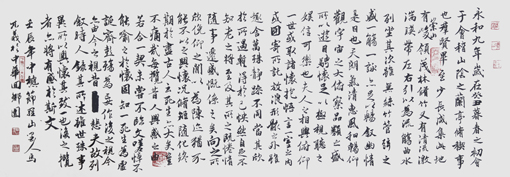 永和九年歲在癸丑暮春之初會
于會稽山陰之蘭亭脩禊事
也群賢畢至少長咸集此地
有崇山峻領茂林脩竹又有清流激
湍暎帶左右引以為流觴曲水
列坐其次雖無絲竹管弦之
盛一觴一詠亦足以暢敘幽情
是日也天朗氣清惠風和暢仰
觀宇宙之大俯察品類之盛
所以遊目騁懷足以極視聽之
娛信可樂也夫人之相與俯仰
一世或取諸懷抱悟言一室之內
或因寄所託放浪形骸之外雖
趣舍萬殊靜躁不同當其欣
於所遇暫得於己快然自足不
知老之將至及其所之既惓情
隨事遷感慨係之矣向之所
欣俛仰之間以為陳迹猶不
能不以之興懷況脩短隨化終
期於盡古人云死生亦大矣豈
不痛哉每攬昔人興感之由
若合一契未嘗不臨文嗟悼不
能喻之於懷固知一死生為虛
誕齊彭殤為妄作後之視今
亦由今之視昔悲夫故列
敘時人錄其所述雖世殊事
異所以興懷其致一也後之攬
者亦將有感於斯文
壬辰年中秋節